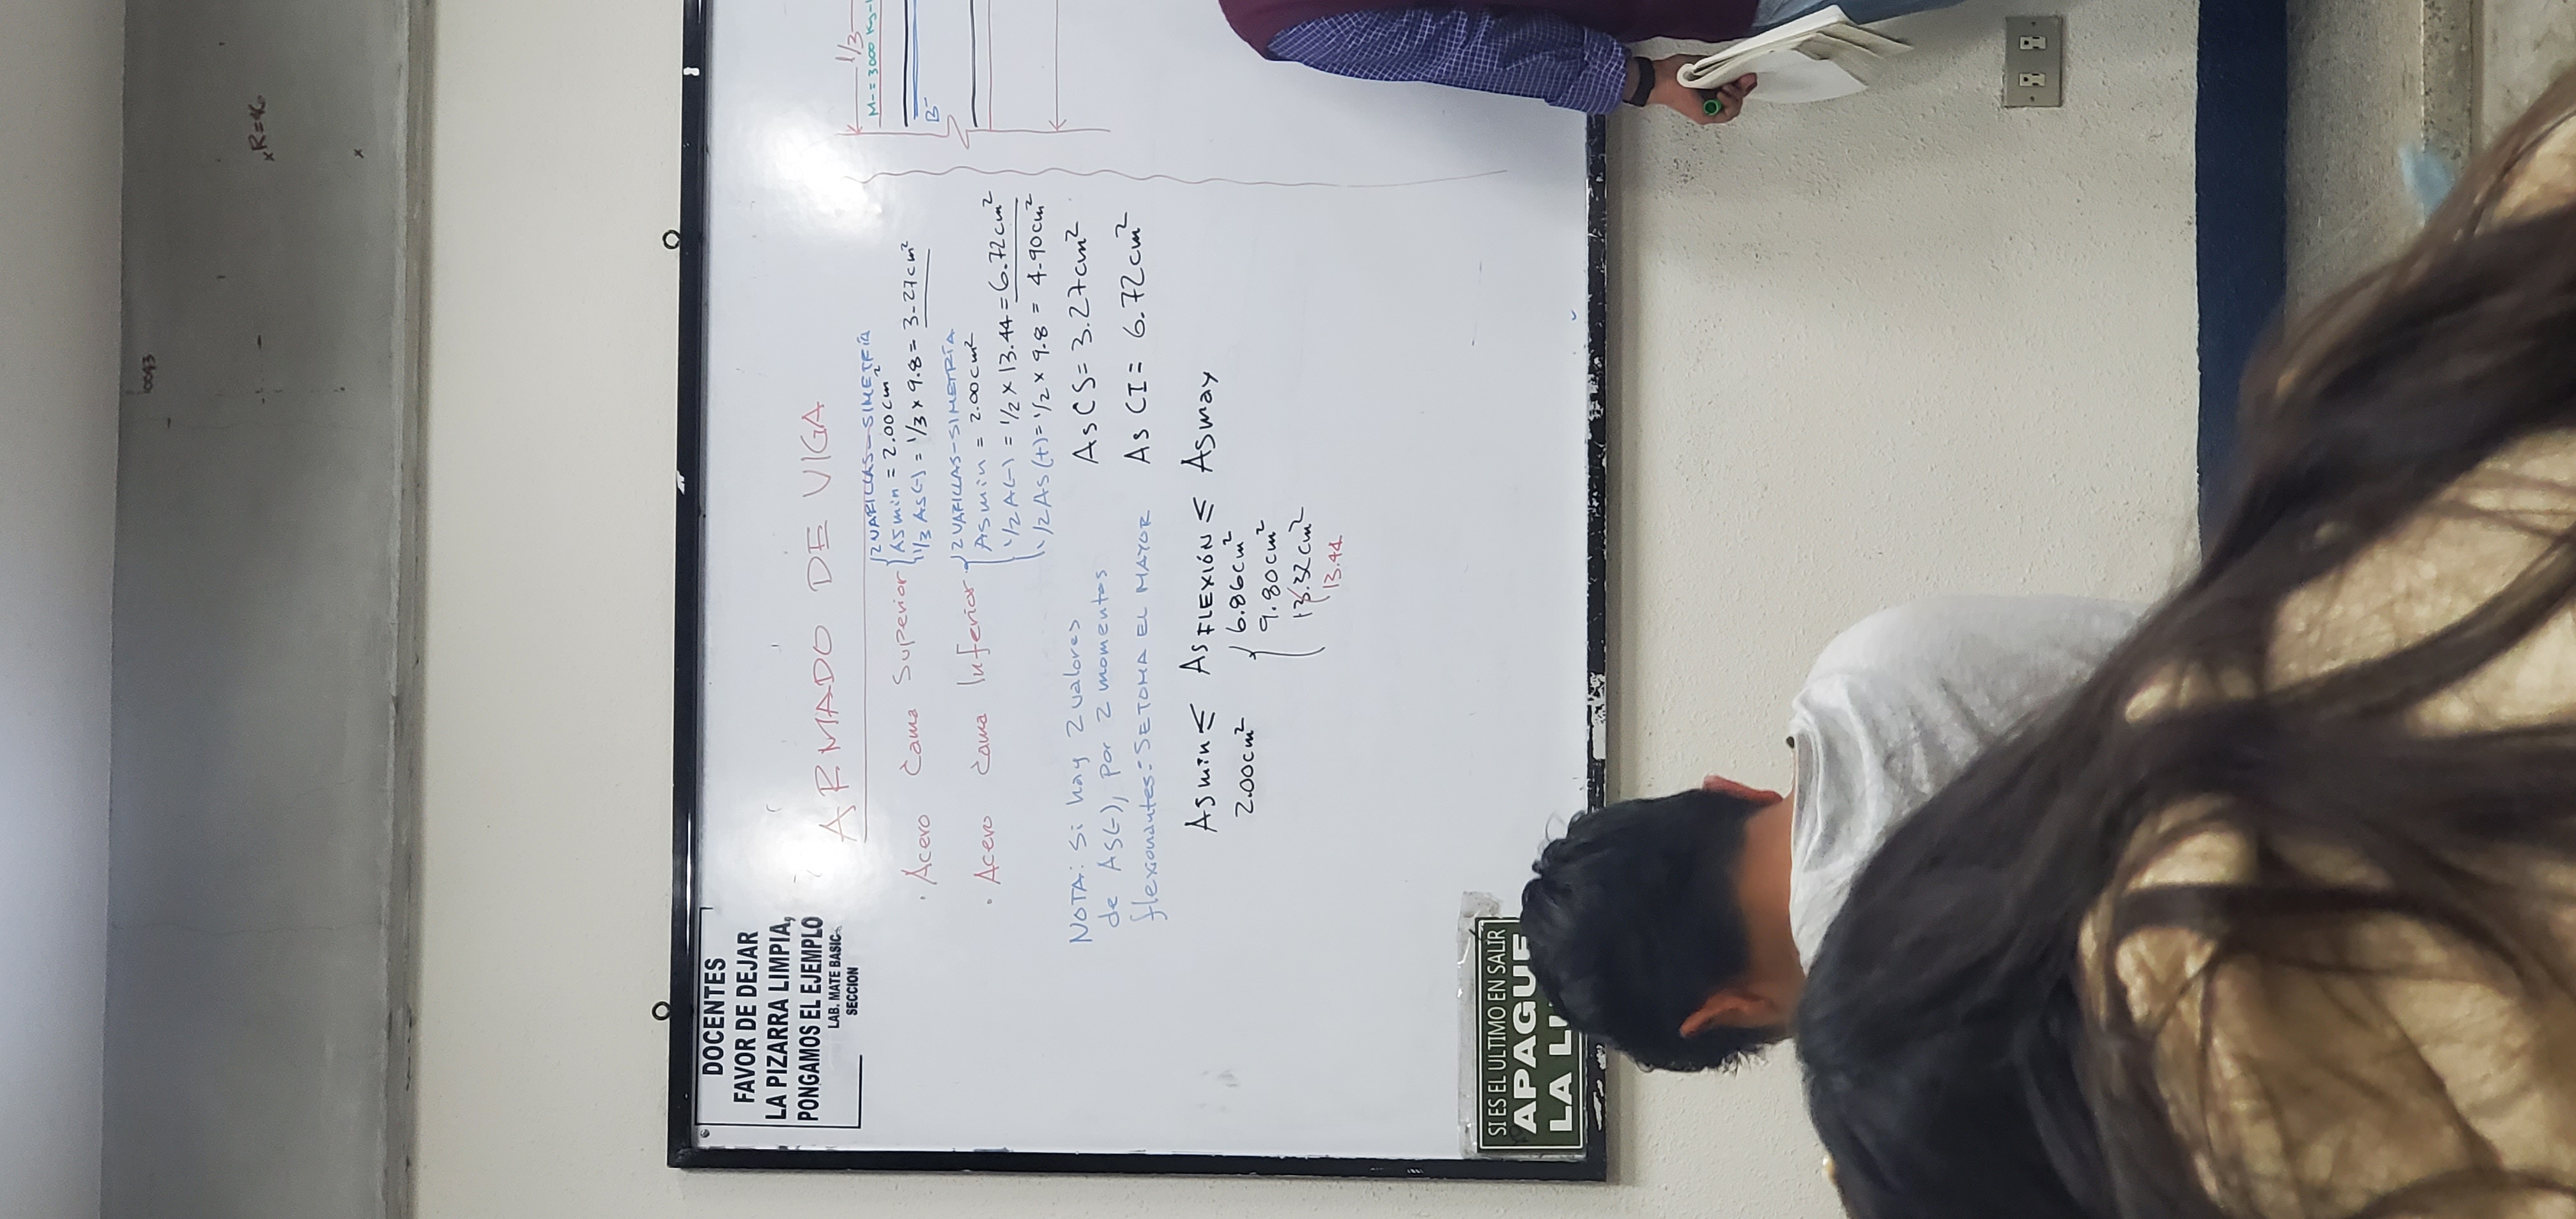 0043
R=46
DOCENTES
FAVOR DE DEJAR
LA PIZARRA LIMPIA,
PONGAMOS EL EJEMPLO
LAB. MATE BASIC
SECCION
ARMADO DE VIGA
• Acero Cama Superior
2 VARILLAS-SIMETRÍA
Asmin = 2.00cm²
1/3 As(-) = 1/3 x 9.8 = 3.27cm²
• Acero Cama Inferior
2 VARILLAS-SIMETRÍA
Asmin = 2.00cm²
1/2 A(-) = 1/2 x 13.44 = 6.72cm²
1/2 As(+) = 1/2 x 9.8 = 4.90cm²
NOTA: Si hay 2 valores
de As(-), por 2 momentos
flexionantes: SE TOMA EL MAYOR
As CS = 3.27cm²
As CI = 6.72cm²
Asmin ≤ As FLEXIÓN ≤ Asmay
2.00cm²
6.86cm²
9.80cm²
13.32cm²
13.44
1/3
M- = 3000 Kg-
B-
SI ES EL ULTIMO EN SALIR
APAGUE
LA LU